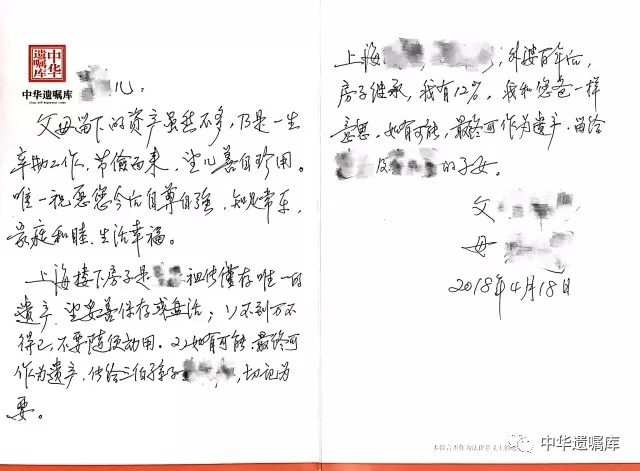 中华
遗嘱库
中华遗嘱库
儿：
父母留下的资产虽然不多，乃是一生
辛勤工作，节俭而来，望儿善自珍用。
唯一祝愿您今后自尊自强，知足常乐，
家庭和睦、生活幸福。
上海楼下房子是 祖传仅存唯一的
遗产，望妥善保存或盘活；1)不到万不
得已，不要随便动用。2)如有可能，最终可
作为遗产，传给三伯孙子 ，切记为
要。
上海 ；外婆百年后，
房子继承，我有12%，我和您爸一样
意思，如有可能，最终可作为遗产，留给
及 的子女。
父
母
2018年4月18日
本留言不作为法律意义上的
中华遗嘱库